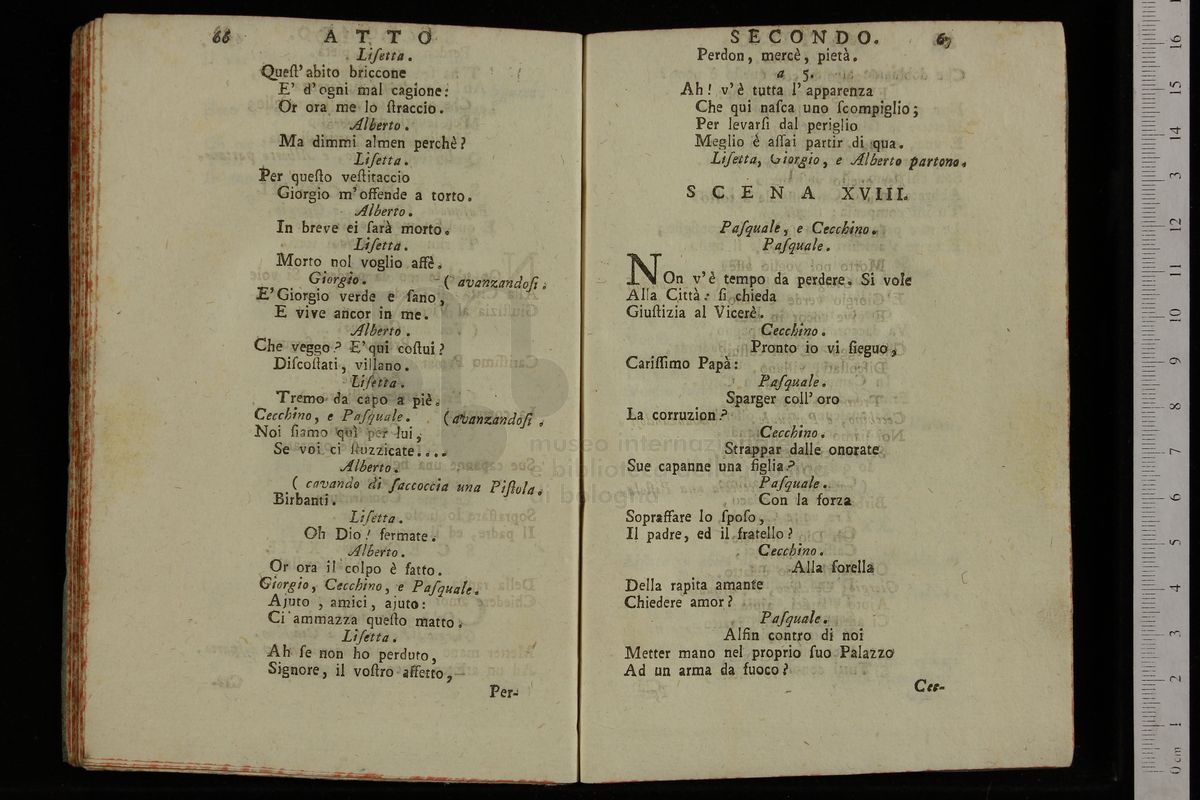 66
ATTO
Liſetta.
Queſt' abito briccone
E' d'ogni mal cagione:
Or ora me lo ſtraccio.
Alberto.
Ma dimmi almen perchè?
Liſetta.
Per queſto veſtitaccio
Giorgio m'offende a torto.
Alberto.
In breve ei ſarà morto.
Liſetta.
Morto nol voglio affè.
Giorgio. (avanzandoſi.
E' Giorgio verde e ſano,
E vive ancor in me.
Alberto.
Che veggo? E' qui coſtui?
Diſcoſtati, villano.
Liſetta.
Tremo da capo a piè.
Cecchino, e Paſquale. (avanzandoſi.
Noi ſiamo quì per lui,
Se voi ci ſtuzzicate....
Alberto.
( cavando di ſaccoccia una Piſtola.
Birbanti.
Liſetta.
Oh Dio! fermate.
Alberto.
Or ora il colpo è fatto.
Giorgio, Cecchino, e Paſquale.
Ajuto, amici, ajuto:
Ci ammazza queſto matto.
Liſetta.
Ah ſe non ho perduto,
Signore, il voſtro affetto,
Per-
SECONDO. 67
Perdon, mercè, pietà.
a 5.
Ah! v'è tutta l'apparenza
Che qui naſca uno ſcompiglio;
Per levarſi dal periglio
Meglio è aſſai partir di qua.
Liſetta, Giorgio, e Alberto partono.
SCENA XVIII.
Paſquale, e Cecchino.
Paſquale.
NOn v'è tempo da perdere. Si vole
Alla Città: ſi chieda
Giuſtizia al Vicerè.
Cecchino.
Pronto io vi ſieguo,
Cariſſimo Papà:
Paſquale.
Sparger coll' oro
La corruzion?
Cecchino.
Strappar dalle onorate
Sue capanne una figlia?
Paſquale.
Con la forza
Sopraffare lo ſpoſo,
Il padre, ed il fratello?
Cecchino.
Alla ſorella
Della rapita amante
Chiedere amor?
Paſquale.
Alfin contro di noi
Metter mano nel proprio ſuo Palazzo
Ad un arma da fuoco?
Cec-
museo internazionale
e biblioteca della musica
di bologna